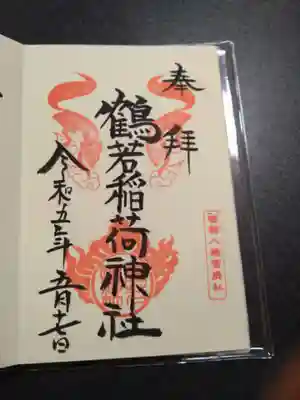 奉拝
鶴若稲荷神社
令和五年五月十七日